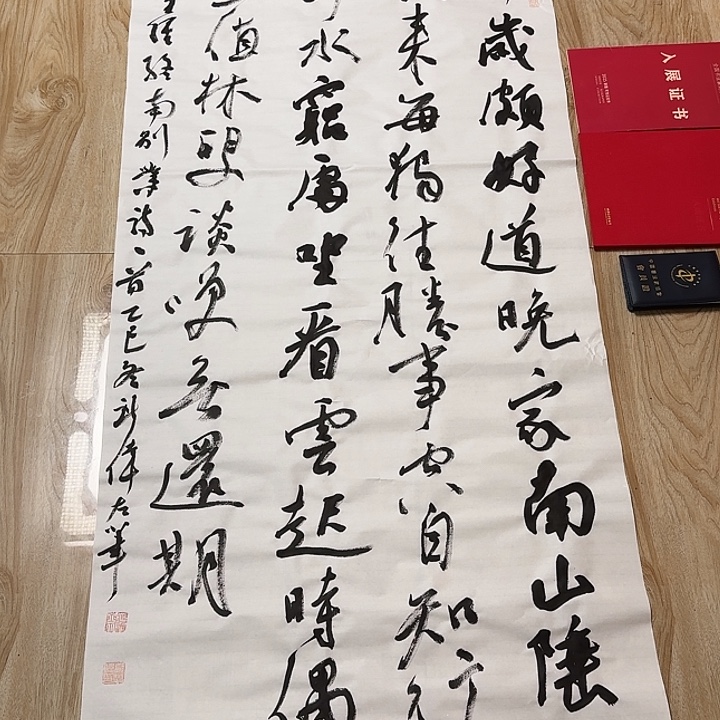 歲頗好道晚家南山陲
来每獨往勝事空自知行
水窮處坐看雲起時偶
值林叟談笑無還期
王維終南別業詩一首乙巳冬新偉左筆
入展证书